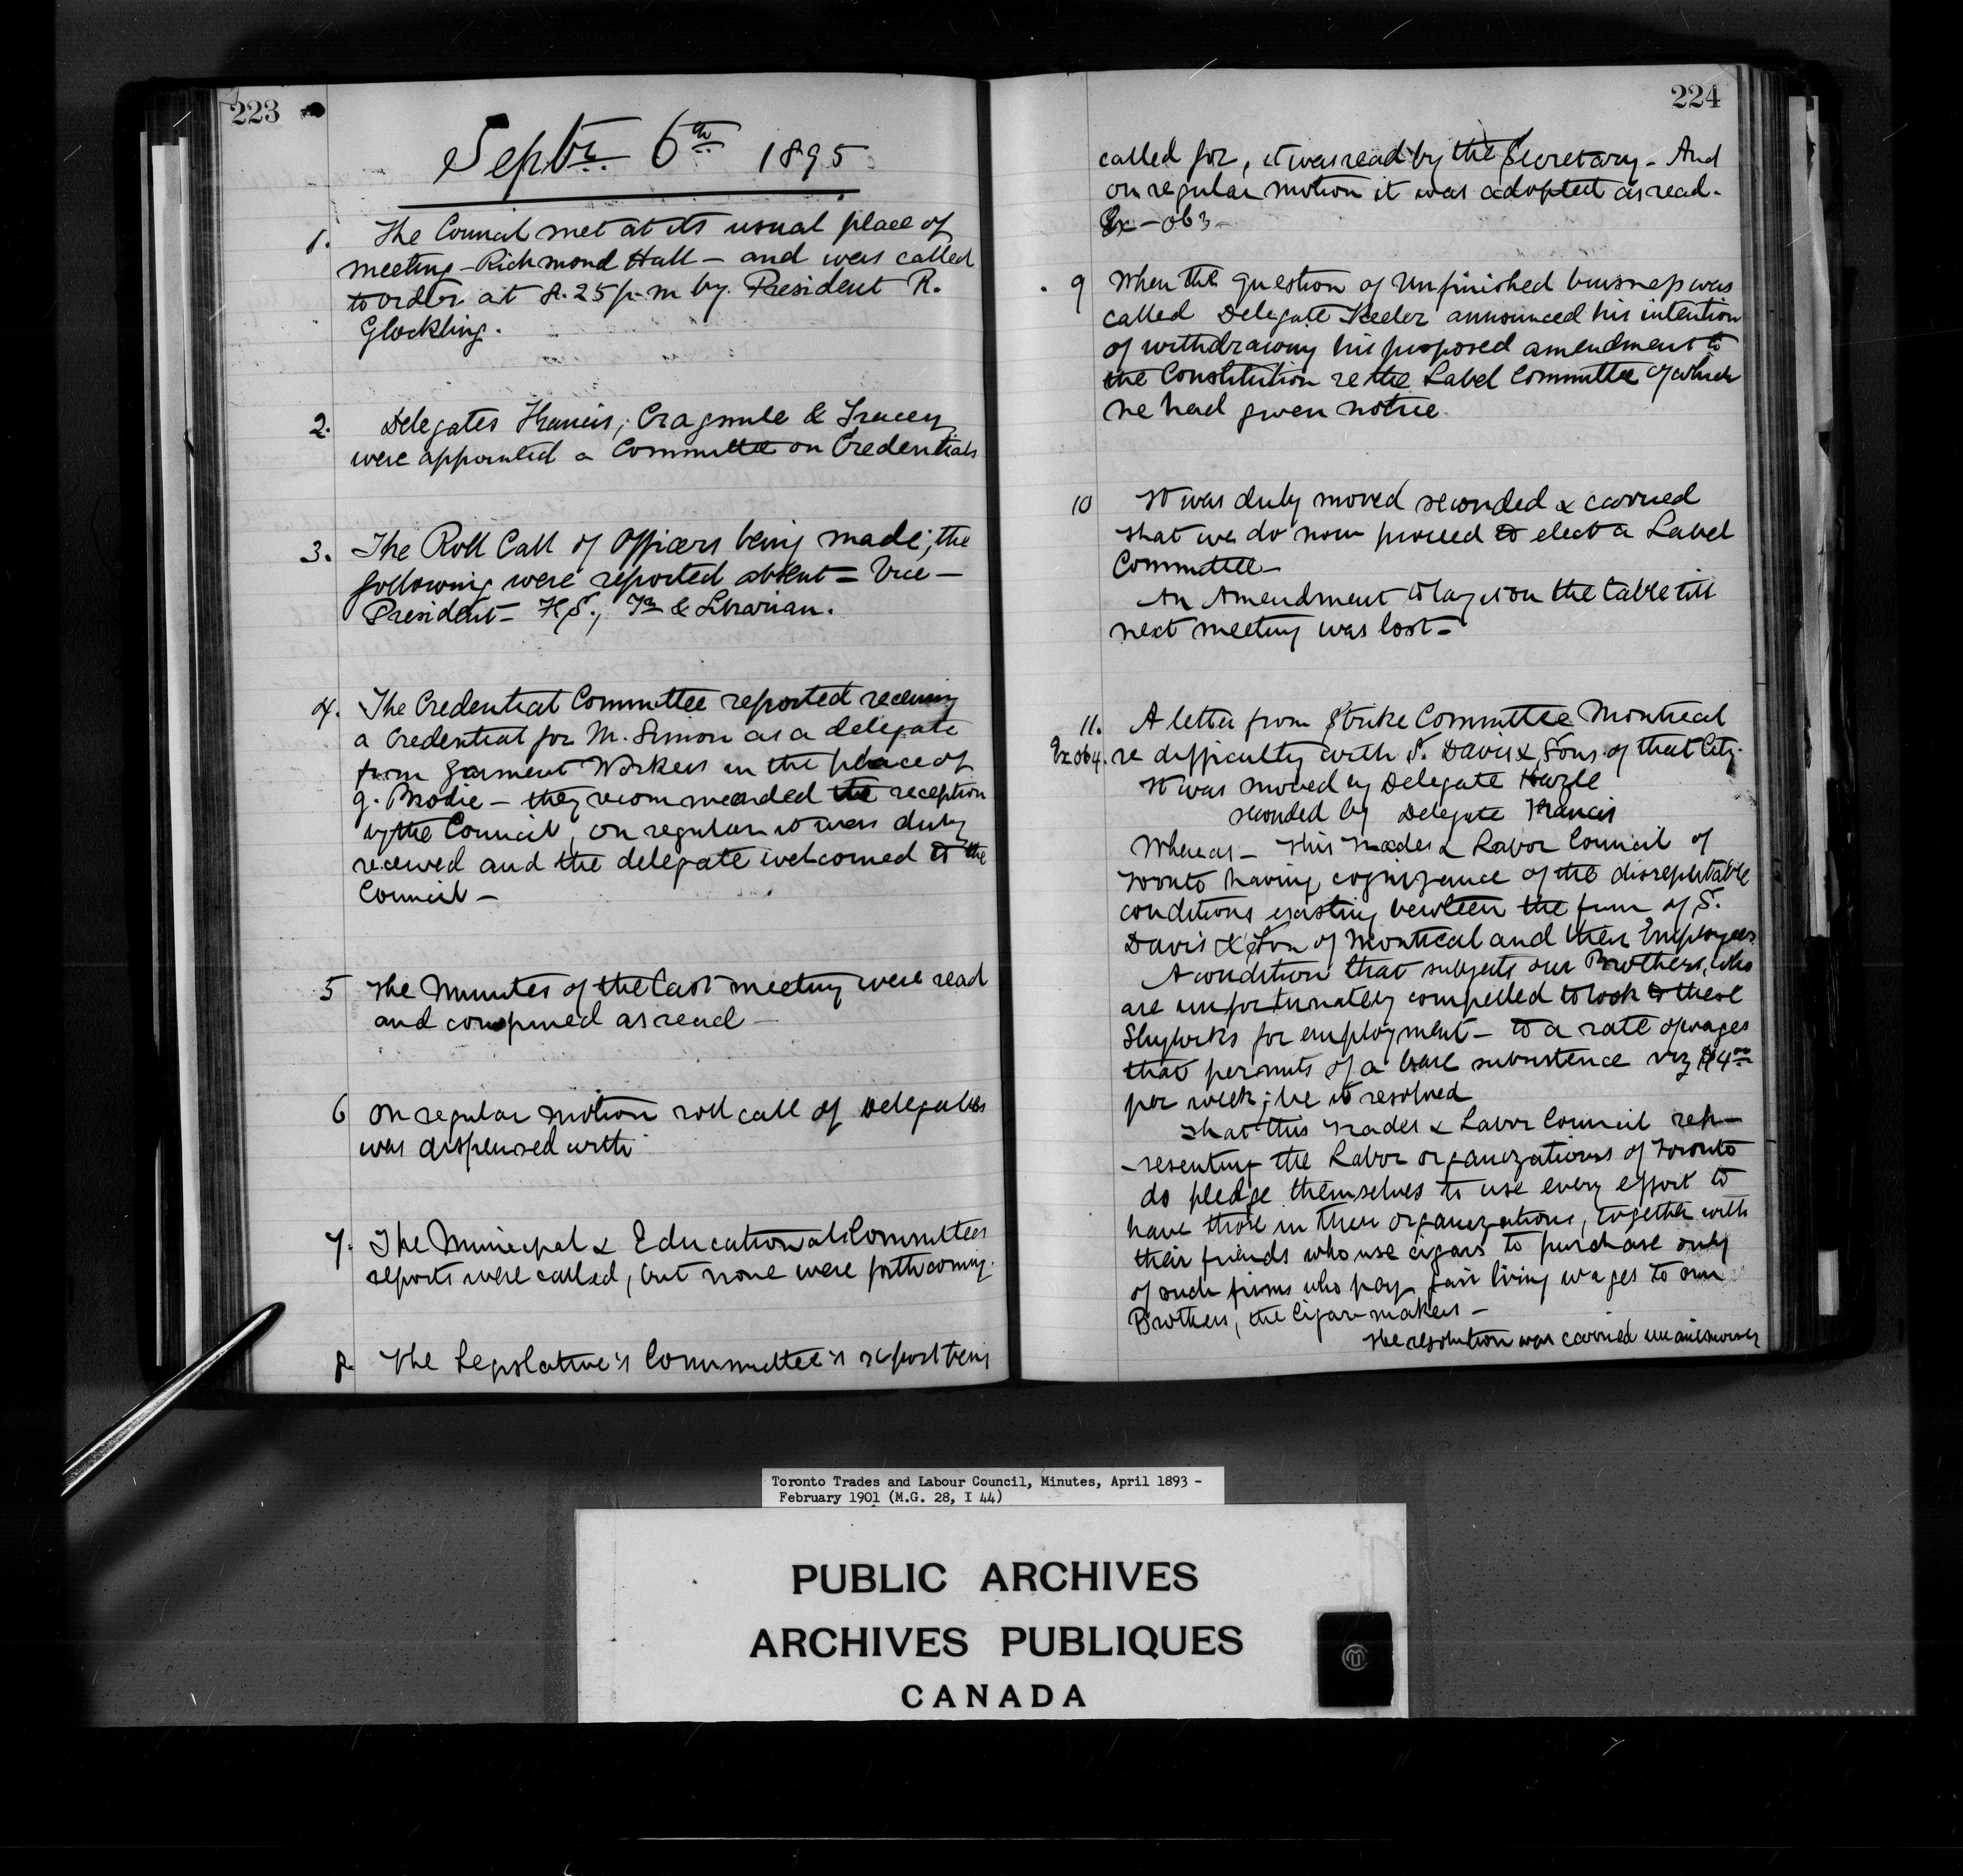 223
Septr. 6th 1895
1. The Council met at its usual place of
meeting - Richmond Hall - and was called
to order at 8.25 p.m by President R.
Glockling.
2. Delegates Francis, & Tracey
were appointed a Committee on Credentials
3. The Roll Call of Officers being made, the
following were reported absent = Vice -
President - F.S., Tr & Librarian.
4. The Credential Committee reported receiving
a Credential for M. Simon as a delegate
from Garment Workers in the place of
g. Brodie - they recommended the reception
by the Council, on regular it was duly
received and the delegate welcomed to the
Council -
5 The Minutes of the last meeting were read
and confirmed as read -
6 On regular motion roll call of Delegates
was dispensed with
7. The Municipal & Educational Committees
reports were called, but none were forthcoming.
8. The Legislative's Committee's report being
224
called for, it was read by the Secretary - And
on regular motion it was adopted as read.
Ex - 063 -
9 When the question of Unfinished business was
called Delegate Keeler announced his intention
of withdrawing his proposed amendment to
the Constitution re the Label Committee of which
he had given notice.
10 It was duly moved seconded & carried
that we do now proceed to elect a Label
Committee -
An Amendment to lay it on the table till
next meeting was lost -
11. A letter from Strike Committee Montreal
Ex 064. re difficulty with S. Davis & Sons of that City.
It was moved by Delegate Hazle
seconded by Delegate Francis
Whereas - This Trades & Labor Council of
Toronto having cognizance of the disreputable
conditions existing between the firm of S.
Davis & Son of Montreal and their Employees
A condition that subjects our Brothers, who
are unfortunately compelled to look to these
Shylocks for employment - to a rate of wages
that permits of a bare subsistence viz $4.00
per week; be it resolved
That this Trades & Labor Council rep-
-resenting the Labor organizations of Toronto
do pledge themselves to use every effort to
have those in their organizations, together with
their friends who use cigars to purchase only
of such firms who pay fair living wages to our
Brothers, the Cigar-makers -
The resolution was carried unanimously
Toronto Trades and Labour Council, Minutes, April 1893 -
February 1901 (M.G. 28, I 44)
PUBLIC ARCHIVES
ARCHIVES PUBLIQUES
CANADA